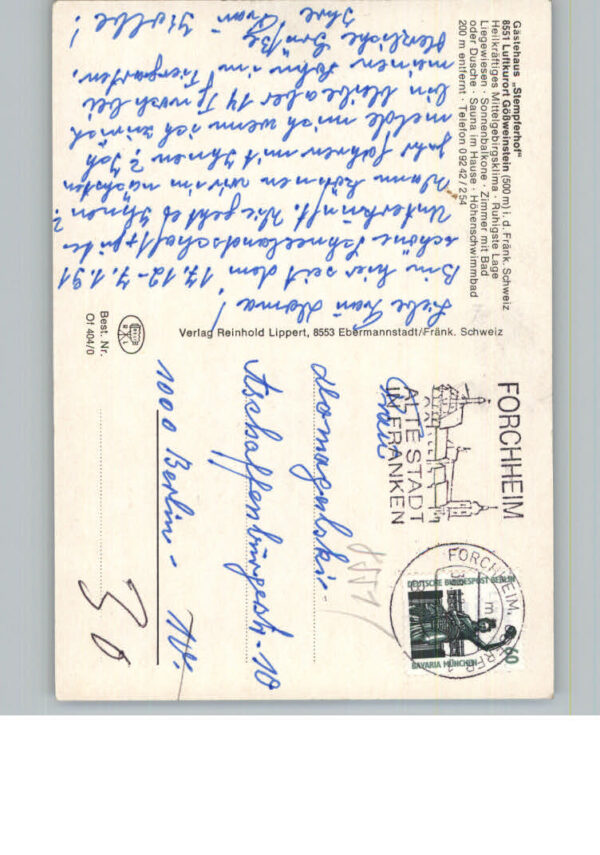 Gästehaus „Stempferhof“
8551 Luftkurort Gößweinstein (500 m) i. d. Fränk. Schweiz
Heilkräftiges Mittelgebirgsklima · Ruhigste Lage
Liegewiesen · Sonnenbalkone · Zimmer mit Bad
oder Dusche · Sauna im Hause · Höhenschwimmbad
200 m entfernt · Telefon 09242/254
Liebe Frau
Bin hier seit dem 17.12-7.1.91
schöne Schneelandschaft + gute
Unterkunft. Wie geht es Ihnen?
Wann können wir im nächsten
Jahr fahren mit Ihnen? Ich
melde mich wenn ich zurück
bin bleibe aber 14 Tg noch bei
meinen Sohn im Tiergarten.
Herzliche Grüße
Ihre Frau
Verlag Reinhold Lippert, 8553 Ebermannstadt/Fränk. Schweiz
Best. Nr.
Of 404/0
FORCHHEIM
ALTE STADT
IN FRANKEN
FORCHHEIM, OBERFR 1
DEUTSCHE BUNDESPOST BERLIN
60
BAVARIA MÜNCHEN
Frau
Aschaffenburgestr. 10
1000 Berlin -
30
8551